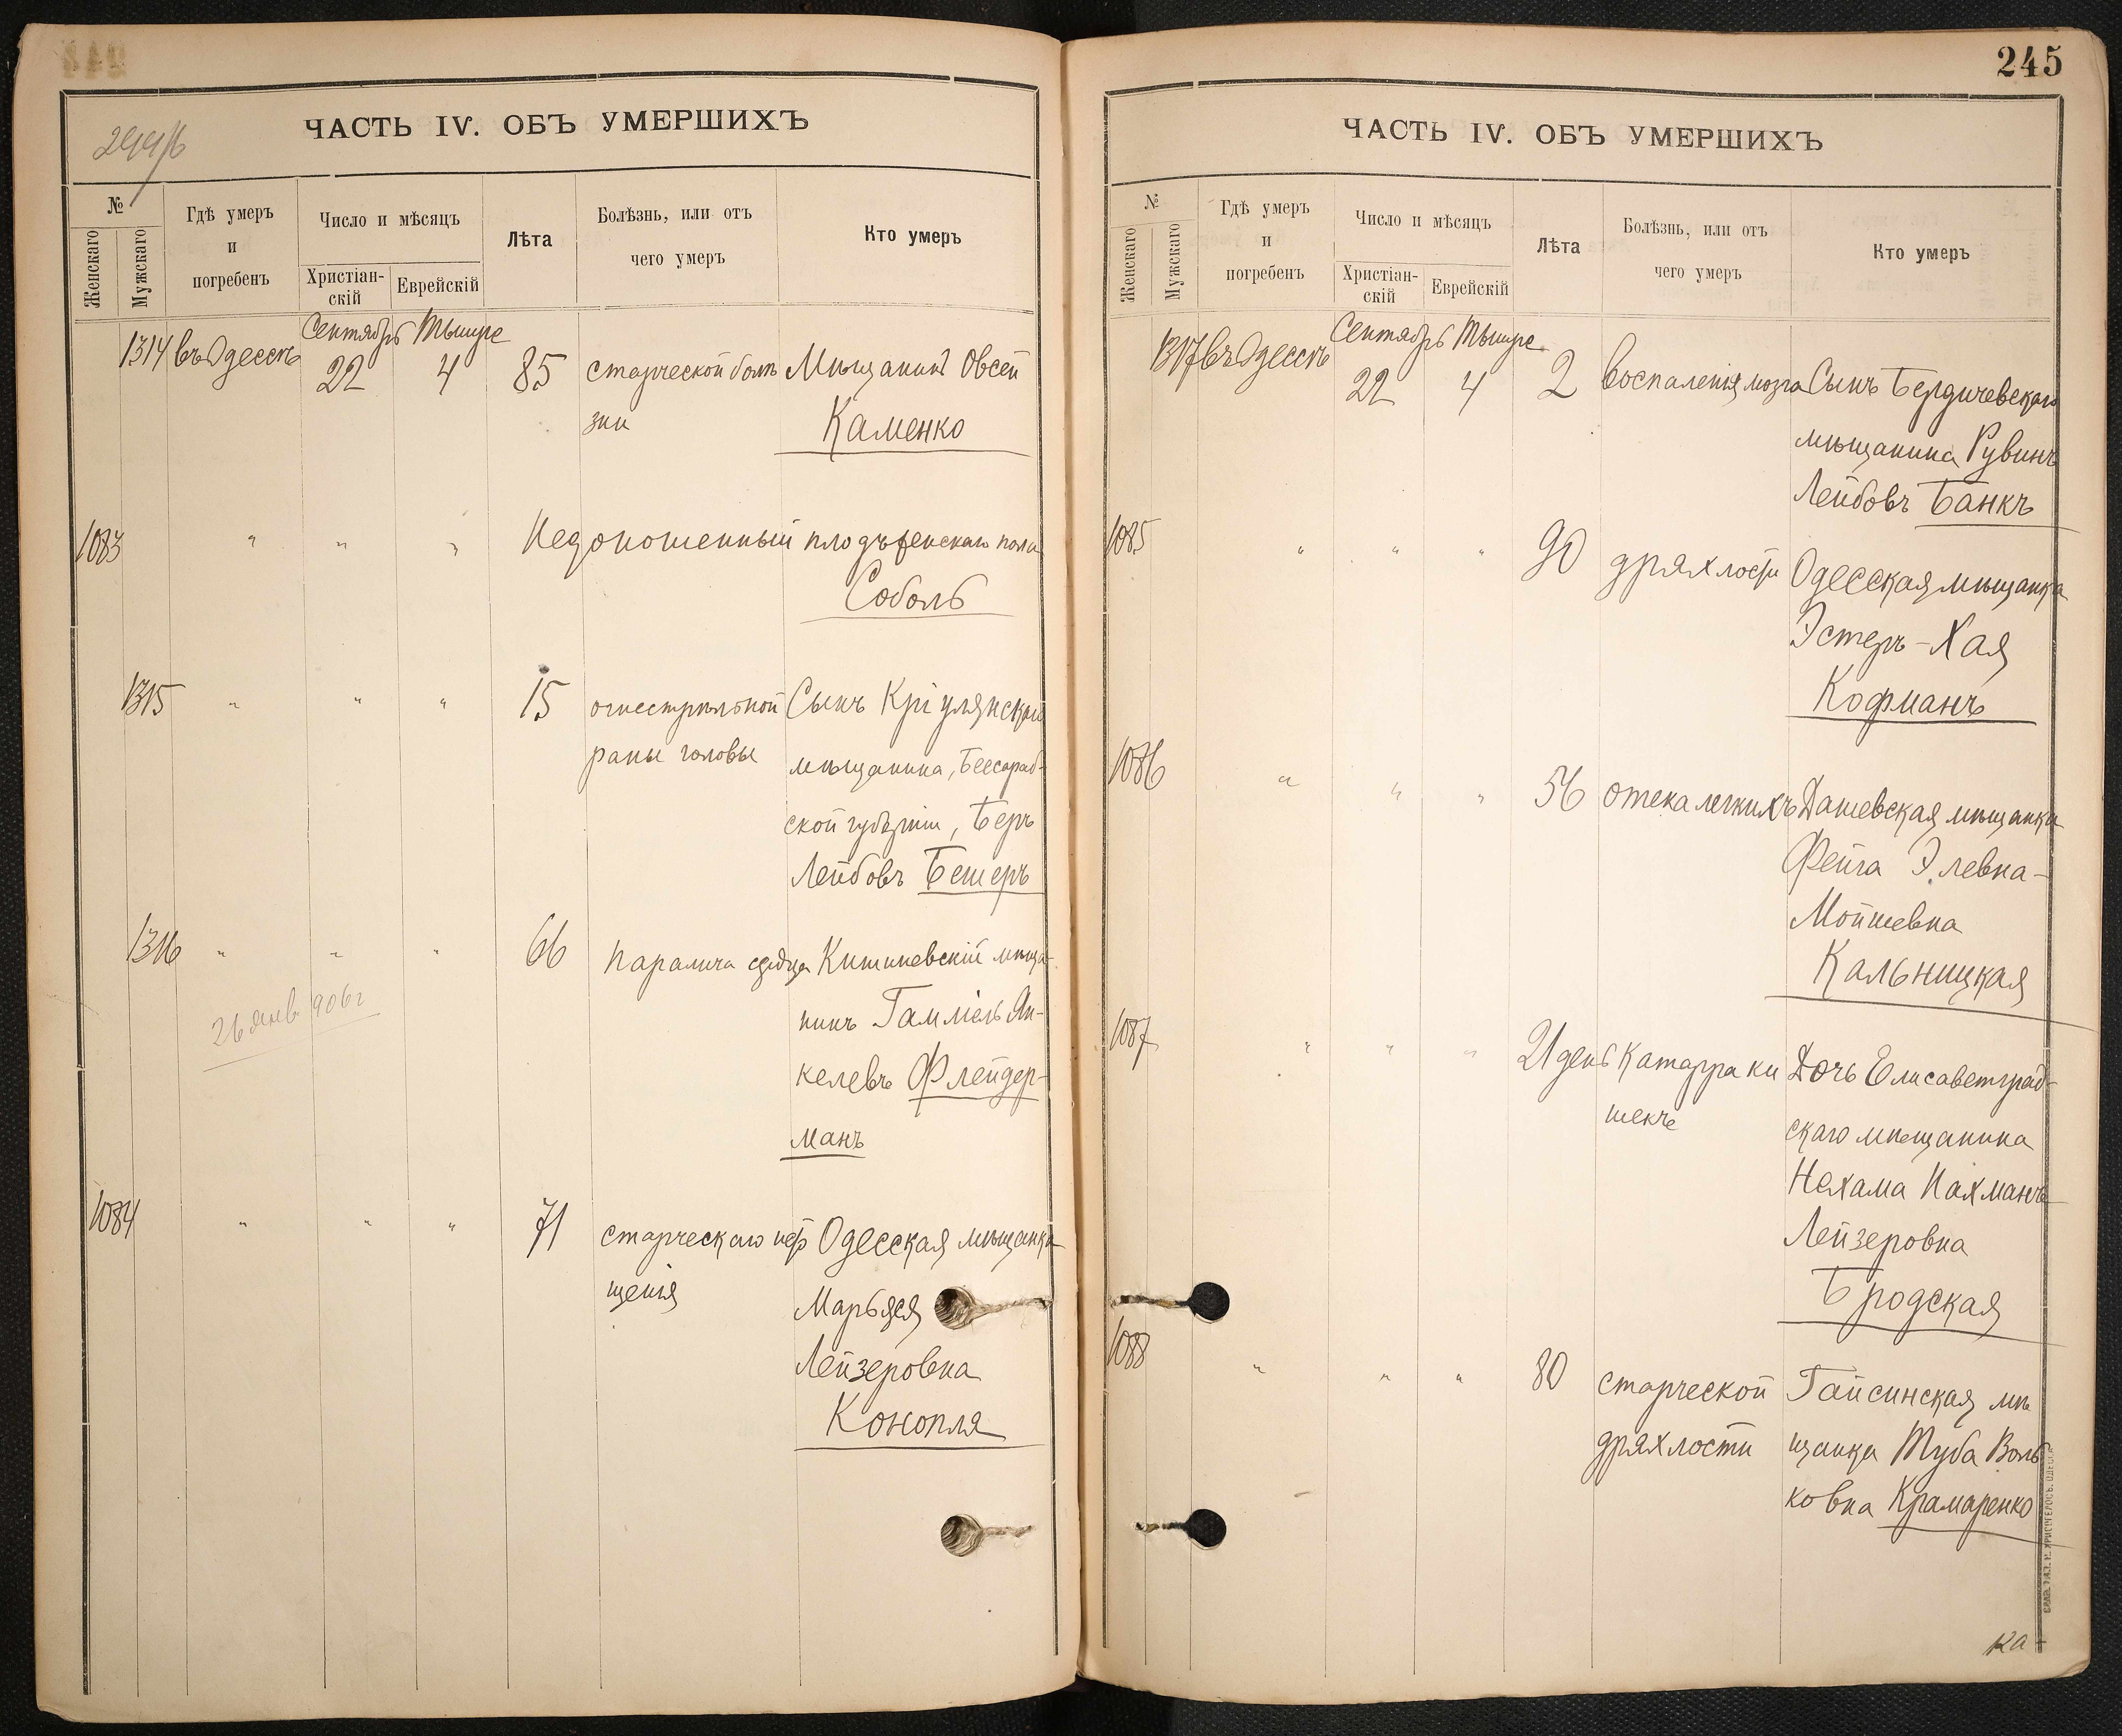 ЧАСТЬ IV. ОБЪ УМЕРШИХЪ
№
Женскаго
Мужскаго
Гдѣ умеръ
и
погребенъ
Число и мѣсяцъ
Христіан-
скій
Еврейскій
Лѣта
Болѣзнь, или отъ
чего умеръ
Кто умеръ
Сентябрь Тышре
1314 въ Одессѣ 22 4 85 старческой болѣ Мѣщанинъ Овсей
зни Каменко
1083 " " " Недоношенный плодъ женскаго пола
Соболь
1315 " " " 15 огнестрѣльной Сынъ Кріулянскаго
раны головы мѣщанина, Бессараб-
ской губерніи, Беръ
Лейбовъ Бешеръ
1316 " " " 66 паралича сердца Кишиневскій мѣща-
нинъ Гаммель Ян-
26 янв. 906 г
келевъ Флейдер-
манъ
1084 " " " 71 старческаго Одесская мѣщанка
щенія Марьяся
Лейзеровна
Конопля
245
ЧАСТЬ IV. ОБЪ УМЕРШИХЪ
№
Женскаго
Мужскаго
Гдѣ умеръ
и
погребенъ
Число и мѣсяцъ
Христіан-
скій
Еврейскій
Лѣта
Болѣзнь, или отъ
чего умеръ
Кто умеръ
Сентябрь Тышре
1317 въ Одессѣ 22 4 2 воспаленія мозга Сынъ Бердичевскаго
мѣщанина Рувинъ
Лейбовъ Банкъ
1085 " " " 90 дряхлости Одесская мѣщанка
Эстеръ-Хая
Кофманъ
1086 " " " 56 отека легкихъ Дашевская мѣщанка
Фейга Элевна-
Мойшевна
Кальницкая
1087 " " " 21 день Катарра ки Дочь Елисаветград-
шекъ скаго мѣщанина
Нехама Нахманъ-
Лейзеровна
Бродская
1088 " " " 80 старческой Гайсинская мѣ
дряхлости щанка Туба Воль
ковна Крамаренко
ка-